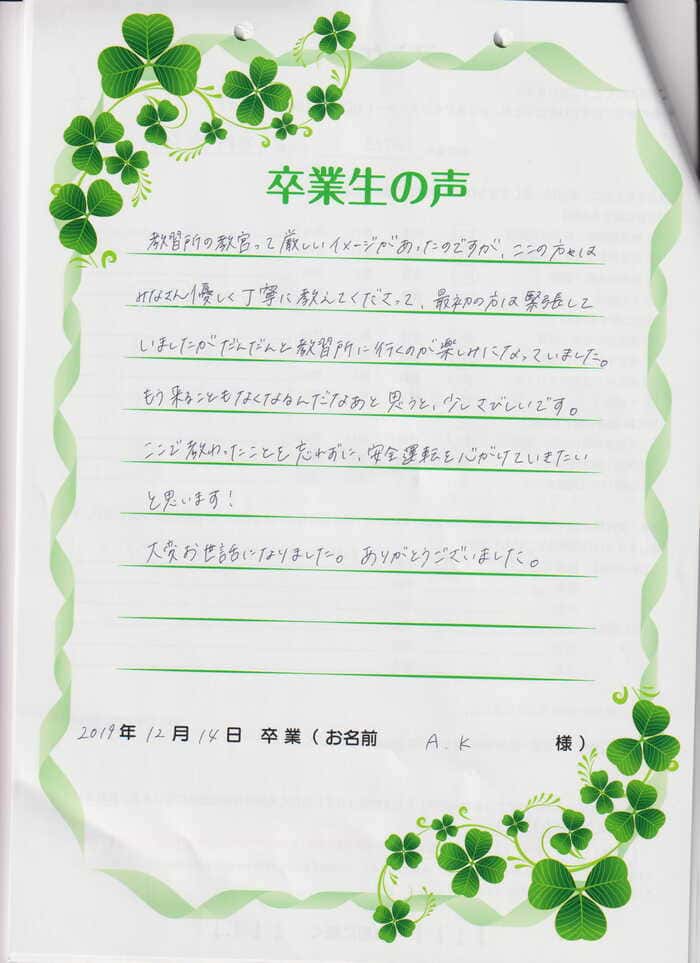 卒業生の声
教習所の教官って厳しいイメージがあったのですが、ここの方々は
みなさん優しく丁寧に教えてくださって、最初の方は緊張して
いましたがだんだんと教習所に行くのが楽しみになっていました。
もう来ることもなくなるんだなあと思うと、少しさびしいです。
ここで教わったことを忘れずに、安全運転を心がけていきたい
と思います!
大変お世話になりました。ありがとうございました。
2019年12月14日 卒業(お名前 A.K 様)